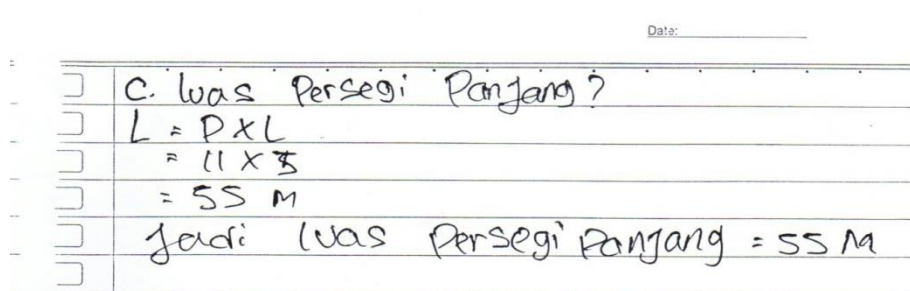 Date:
C. Luas Persegi Panjang?
L = P X L
= 11 X 5
= 55 M
Jadi luas Persegi Panjang = 55 M